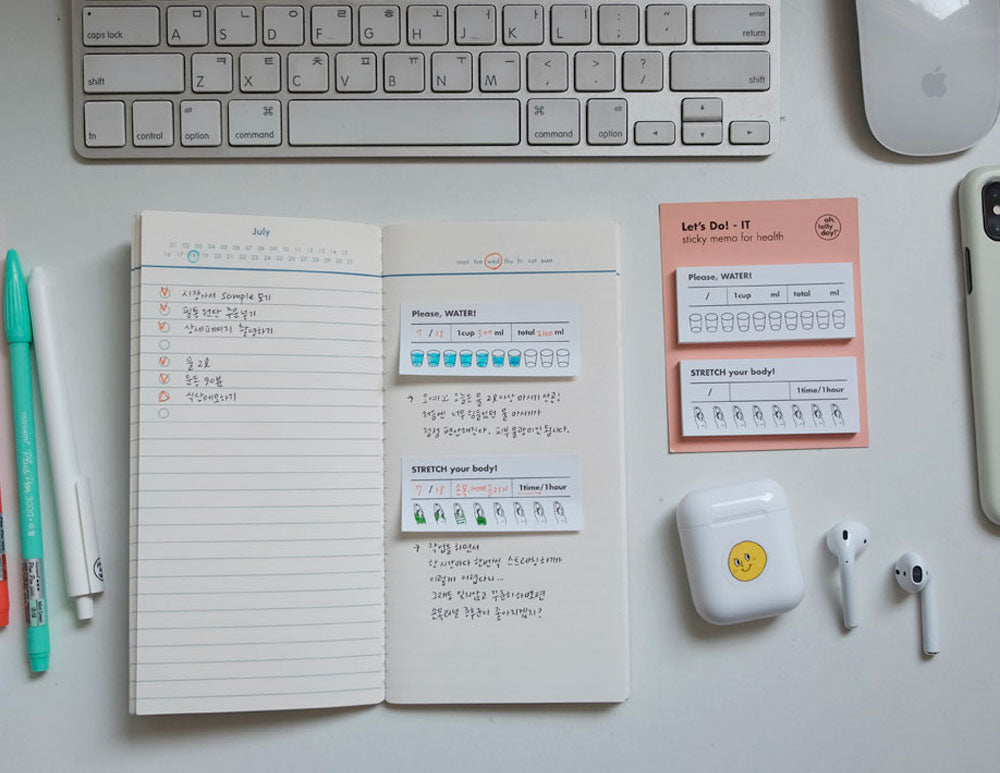 caps lock A ㅁ S ㄴ D ㅇ F ㄹ G ㅎ H ㅗ J ㅓ K ㅏ L ㅣ : ; " ' enter return
shift Z ㅋ X ㅌ C ㅊ V ㅍ B ㅠ N ㅜ M ㅡ < , > . ? / shift
fn control alt option ⌘ command ⌘ command alt option
July
01 02 03 04 05 06 07 08 09 10 11 12 13 14 15
16 17 18 19 20 21 22 23 24 25 26 27 28 29 30 31
시장가서 sample 보기
필통 원단 주문넣기
상세페이지 촬영하기
물 2L
운동 90분
식단메모하기
mon tue wed thu fri sat sun
Please, WATER!
7 / 18 1cup 300 ml total 2100 ml
→ 오예! 오늘도 물 2L이상 마시기 성공!
처음엔 너무 힘들었던 물 마시기가
점점 편안해진다. 피부 물광미인 됩시다.
STRETCH your body!
7 / 18 손목, 어깨 돌리기 1time/1hour
→ 작업을 하면서
한 시간마다 한번씩 스트레칭하기가
이렇게 어렵다니...
그래도 잊지않고 꾸준히 하보면
손목터널 증후군이 좋아지겠지?
Let's Do! - IT
sticky memo for health
oh, lolly day!
Please, WATER!
/ 1cup ml total ml
STRETCH your body!
/ 1time/1hour
monami Plus Pen 3000